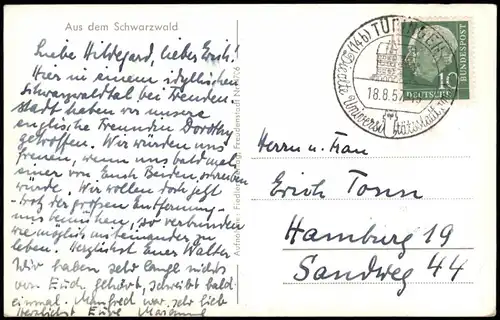 Aus dem Schwarzwald
Liebe Hildegard, lieber Erich!
Hier in einem idyllischen
Schwarzwaldtal bei Freuden-
stadt haben wir unsere
englische Freundin Dorothy
getroffen. Wir würden uns
freuen, wenn uns bald mal
einer von Euch Beiden schreiben
würde. Wir wollen doch jetzt
- trotz der großen Entfernung -
uns bemühen, so verbunden
wie möglich miteinander zu
leben. Herzlichst Euer Walter
Wir haben sehr lange nichts
von Euch gehört, schreibt bald
einmal. Manfred war sehr lieb
Herzlichst Eure Marianne
(14b) TÜBINGEN
18.8.57
Universitätsstadt
10
DEUTSCHE
BUNDESPOST
Herrn u. Frau
Erich Tonn
Hamburg 19
Sandweg 44